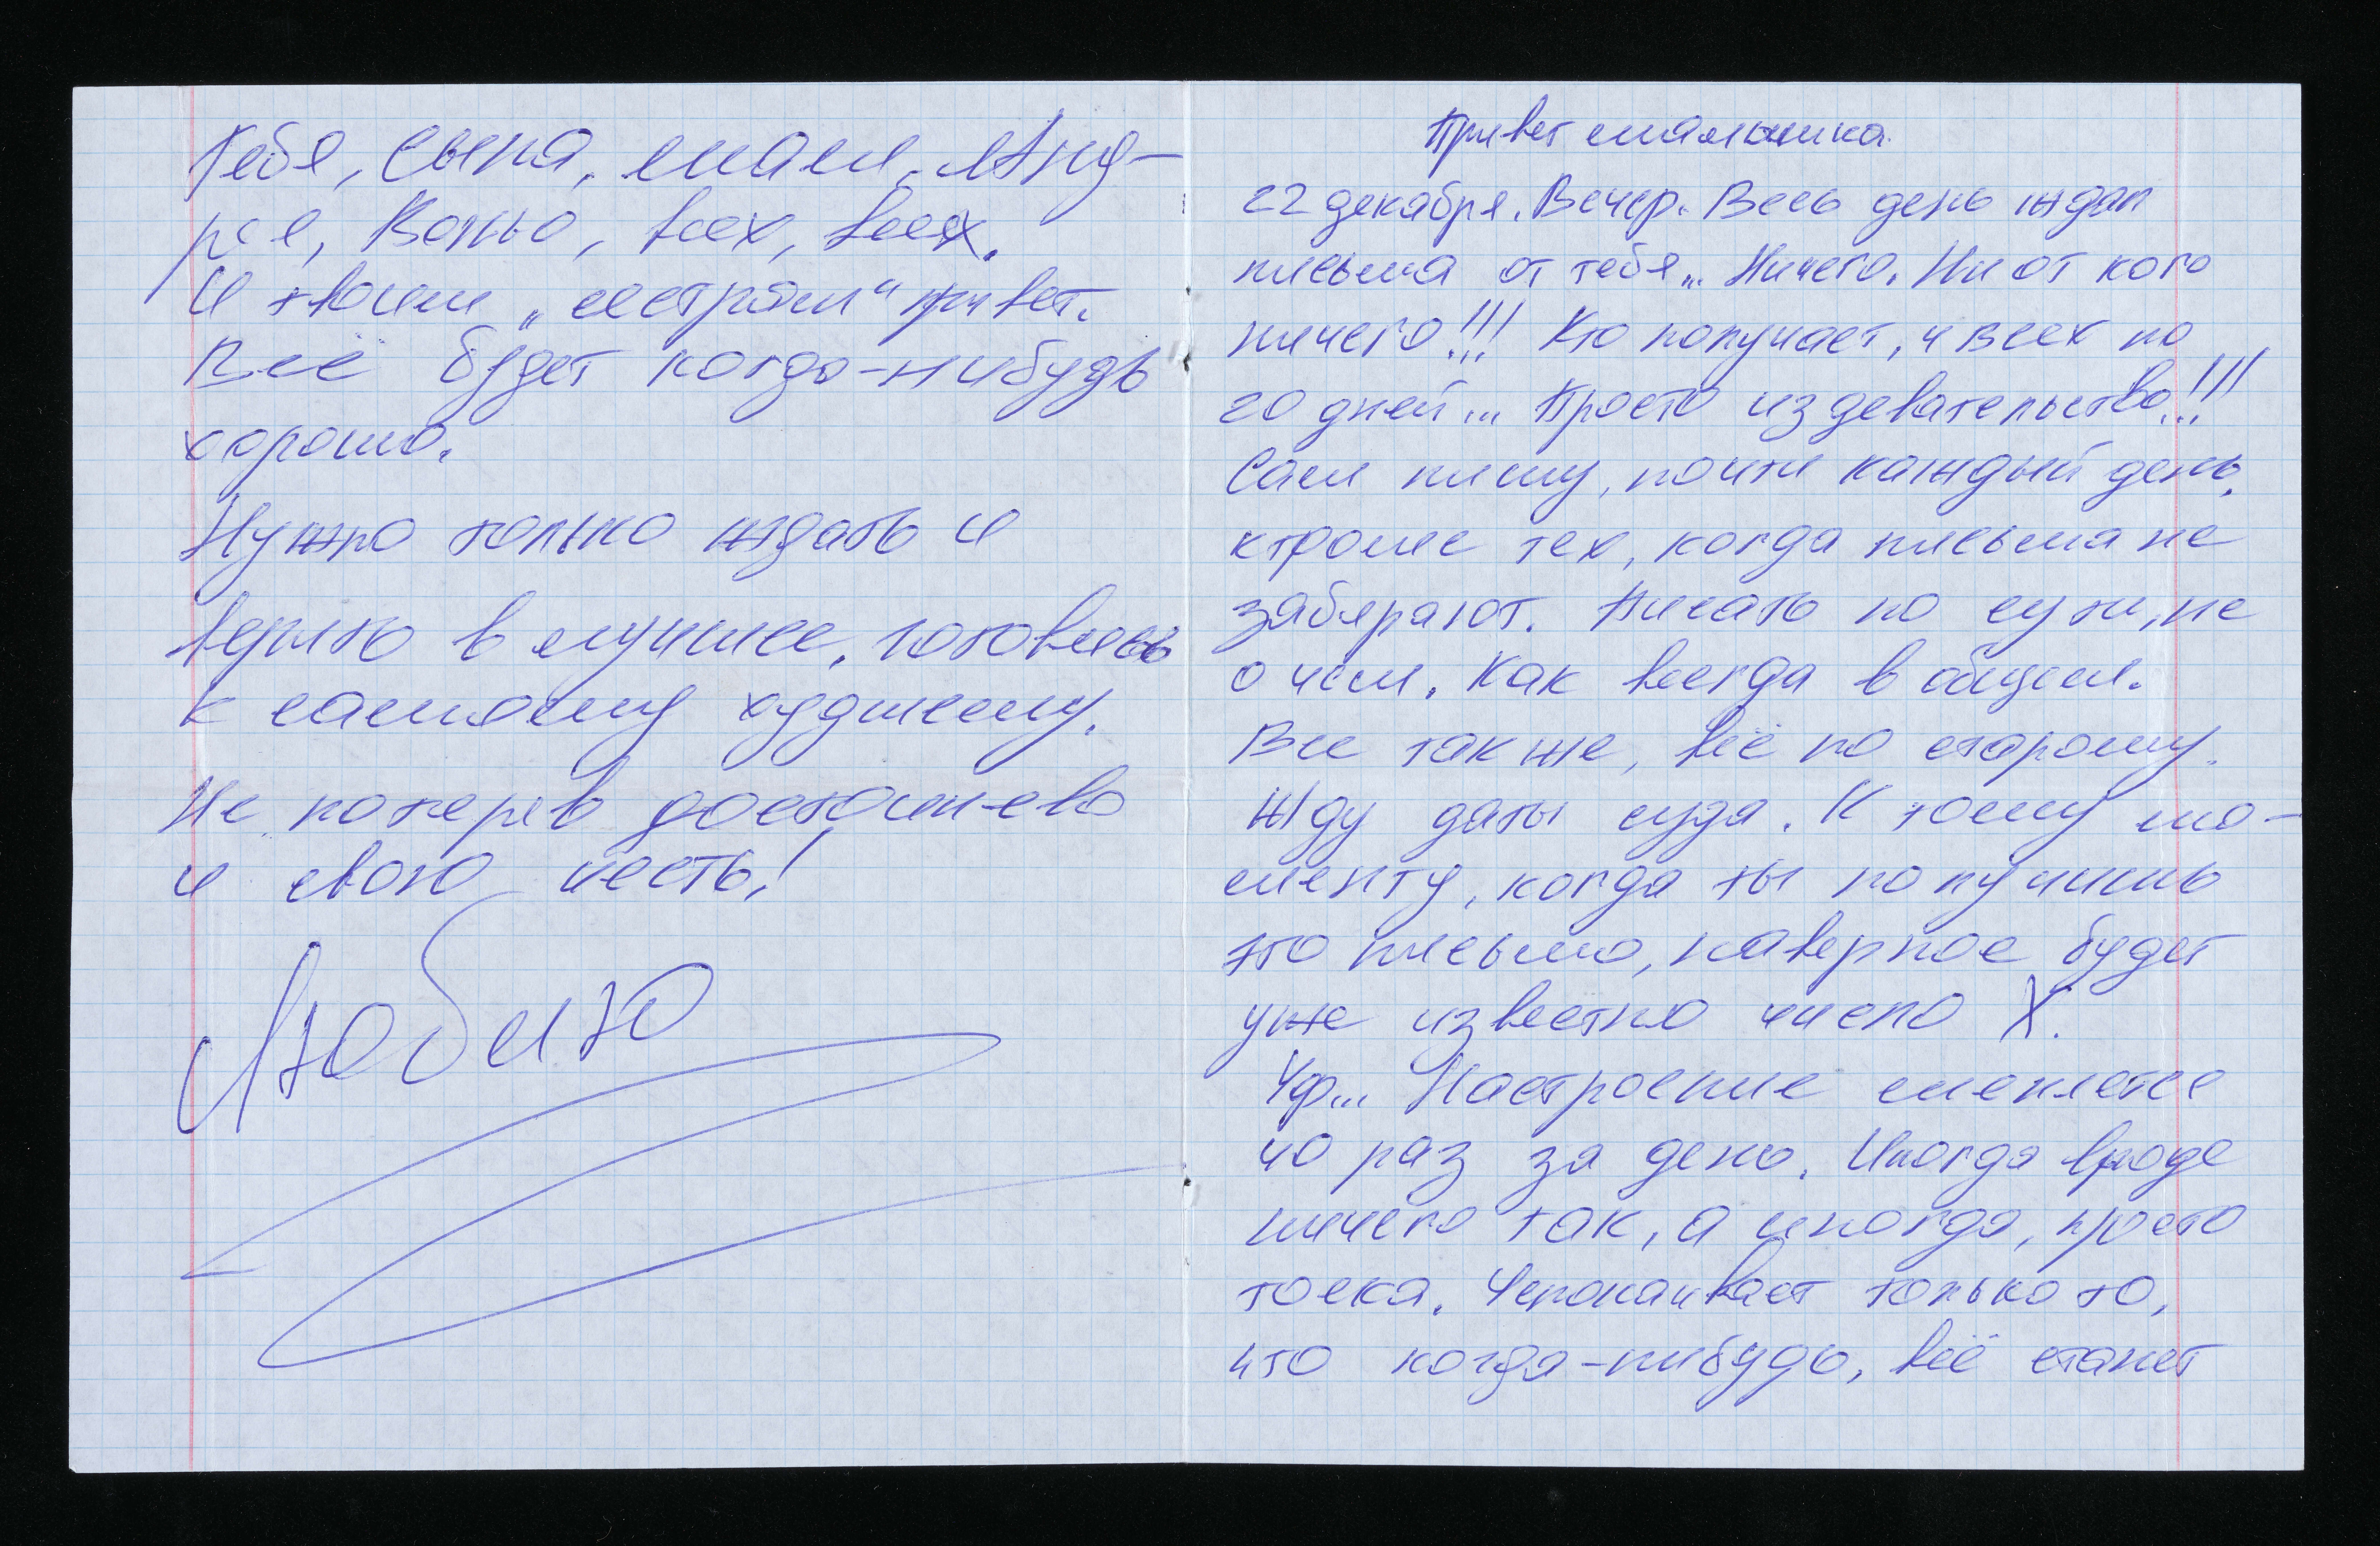 Тебя, сына, мам, Анд-
рея, Ваню, всех, всех.
И твоим „сестрам“ привет.
Всё будет когда-нибудь
хорошо.
Нужно только ждать и
верить в лучшее, готовясь
к самому худшему.
Не потеряв достоинсво
и свою честь!
Люблю
Привет малышка.
22 декабря. Вечер. Весь день ждал
письма от тебя... Ничего. Ни от кого
ничего!!! Кто получает, у всех по
20 дней... Просто издевательство!!!
Сам пишу, почти каждый день,
кроме тех, когда письма не
забирают. Писать по сути, не
о чем. Как всегда в общем.
Все также, всё по старому.
Жду даты суда. К тому мо-
менту, когда ты получишь
это письмо, наверное будет
уже известно число X.
Уф... Настроение меняется
40 раз за день. Иногда вроде
ничего так, а иногда, просто
тоска. Успокаивает только то,
что когда-нибудь, всё станет